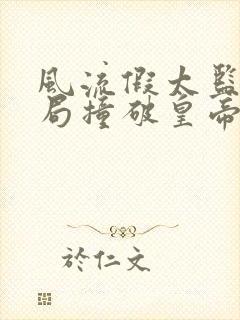 風流假太監
局撞破皇帝
於仁文